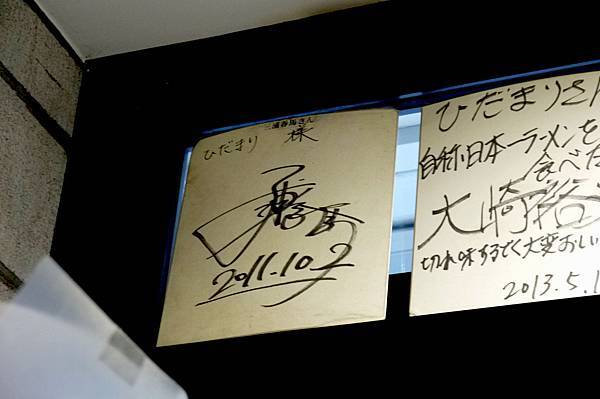 三浦春馬さん
ひだまり 様
2011.10.2
ひだまりさん
自称日本一ラーメンを
食べた
大崎裕
切れ味するどく大変おいしい
2013.5.1